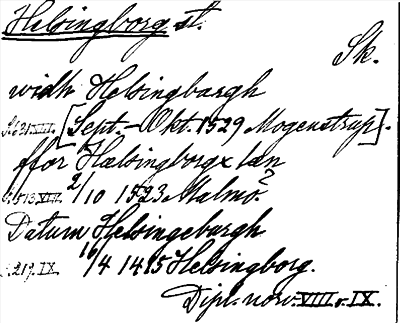 Helsingborg st.
Sk.
widh Helsingbargh
S. 631. VIII. [Sept.-Okt. 1529 Mogenstrup].
ffor Hælsingborgx lan
S. 513. VIII. 2/10 1523 Malmö?
Datum Helsingeburgh
S. 219. IX. 16/4 1415 Helsingborg.
Dipl. norv. VIII. o. IX.